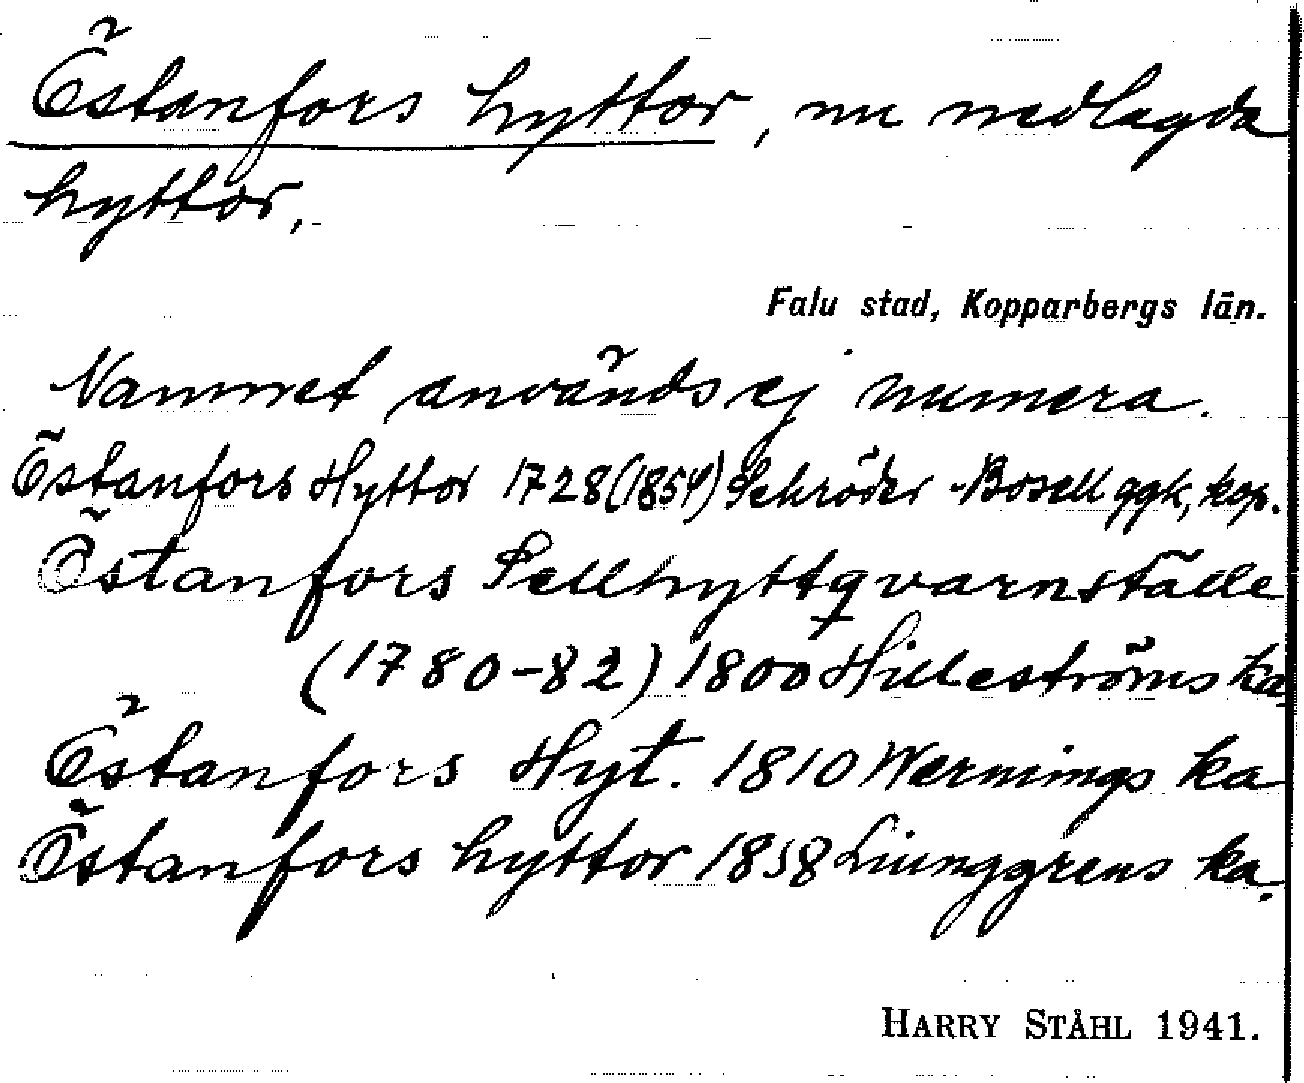 Östanfors hyttor, nu nedlagda
hyttor,
Falu stad, Kopparbergs län.
Namnet används ej numera.
Östanfors Hyttor 1728 (1854) Schröder - Bosell ggk, kop.
Östanfors Sellhyttqvarnställe
(1780-82) 1800 Hilleströms ka
Östanfors Hyt. 1810 Wernings ka
Östanfors hyttor 1858 Liunggrens ka.
HARRY STÅHL 1941.